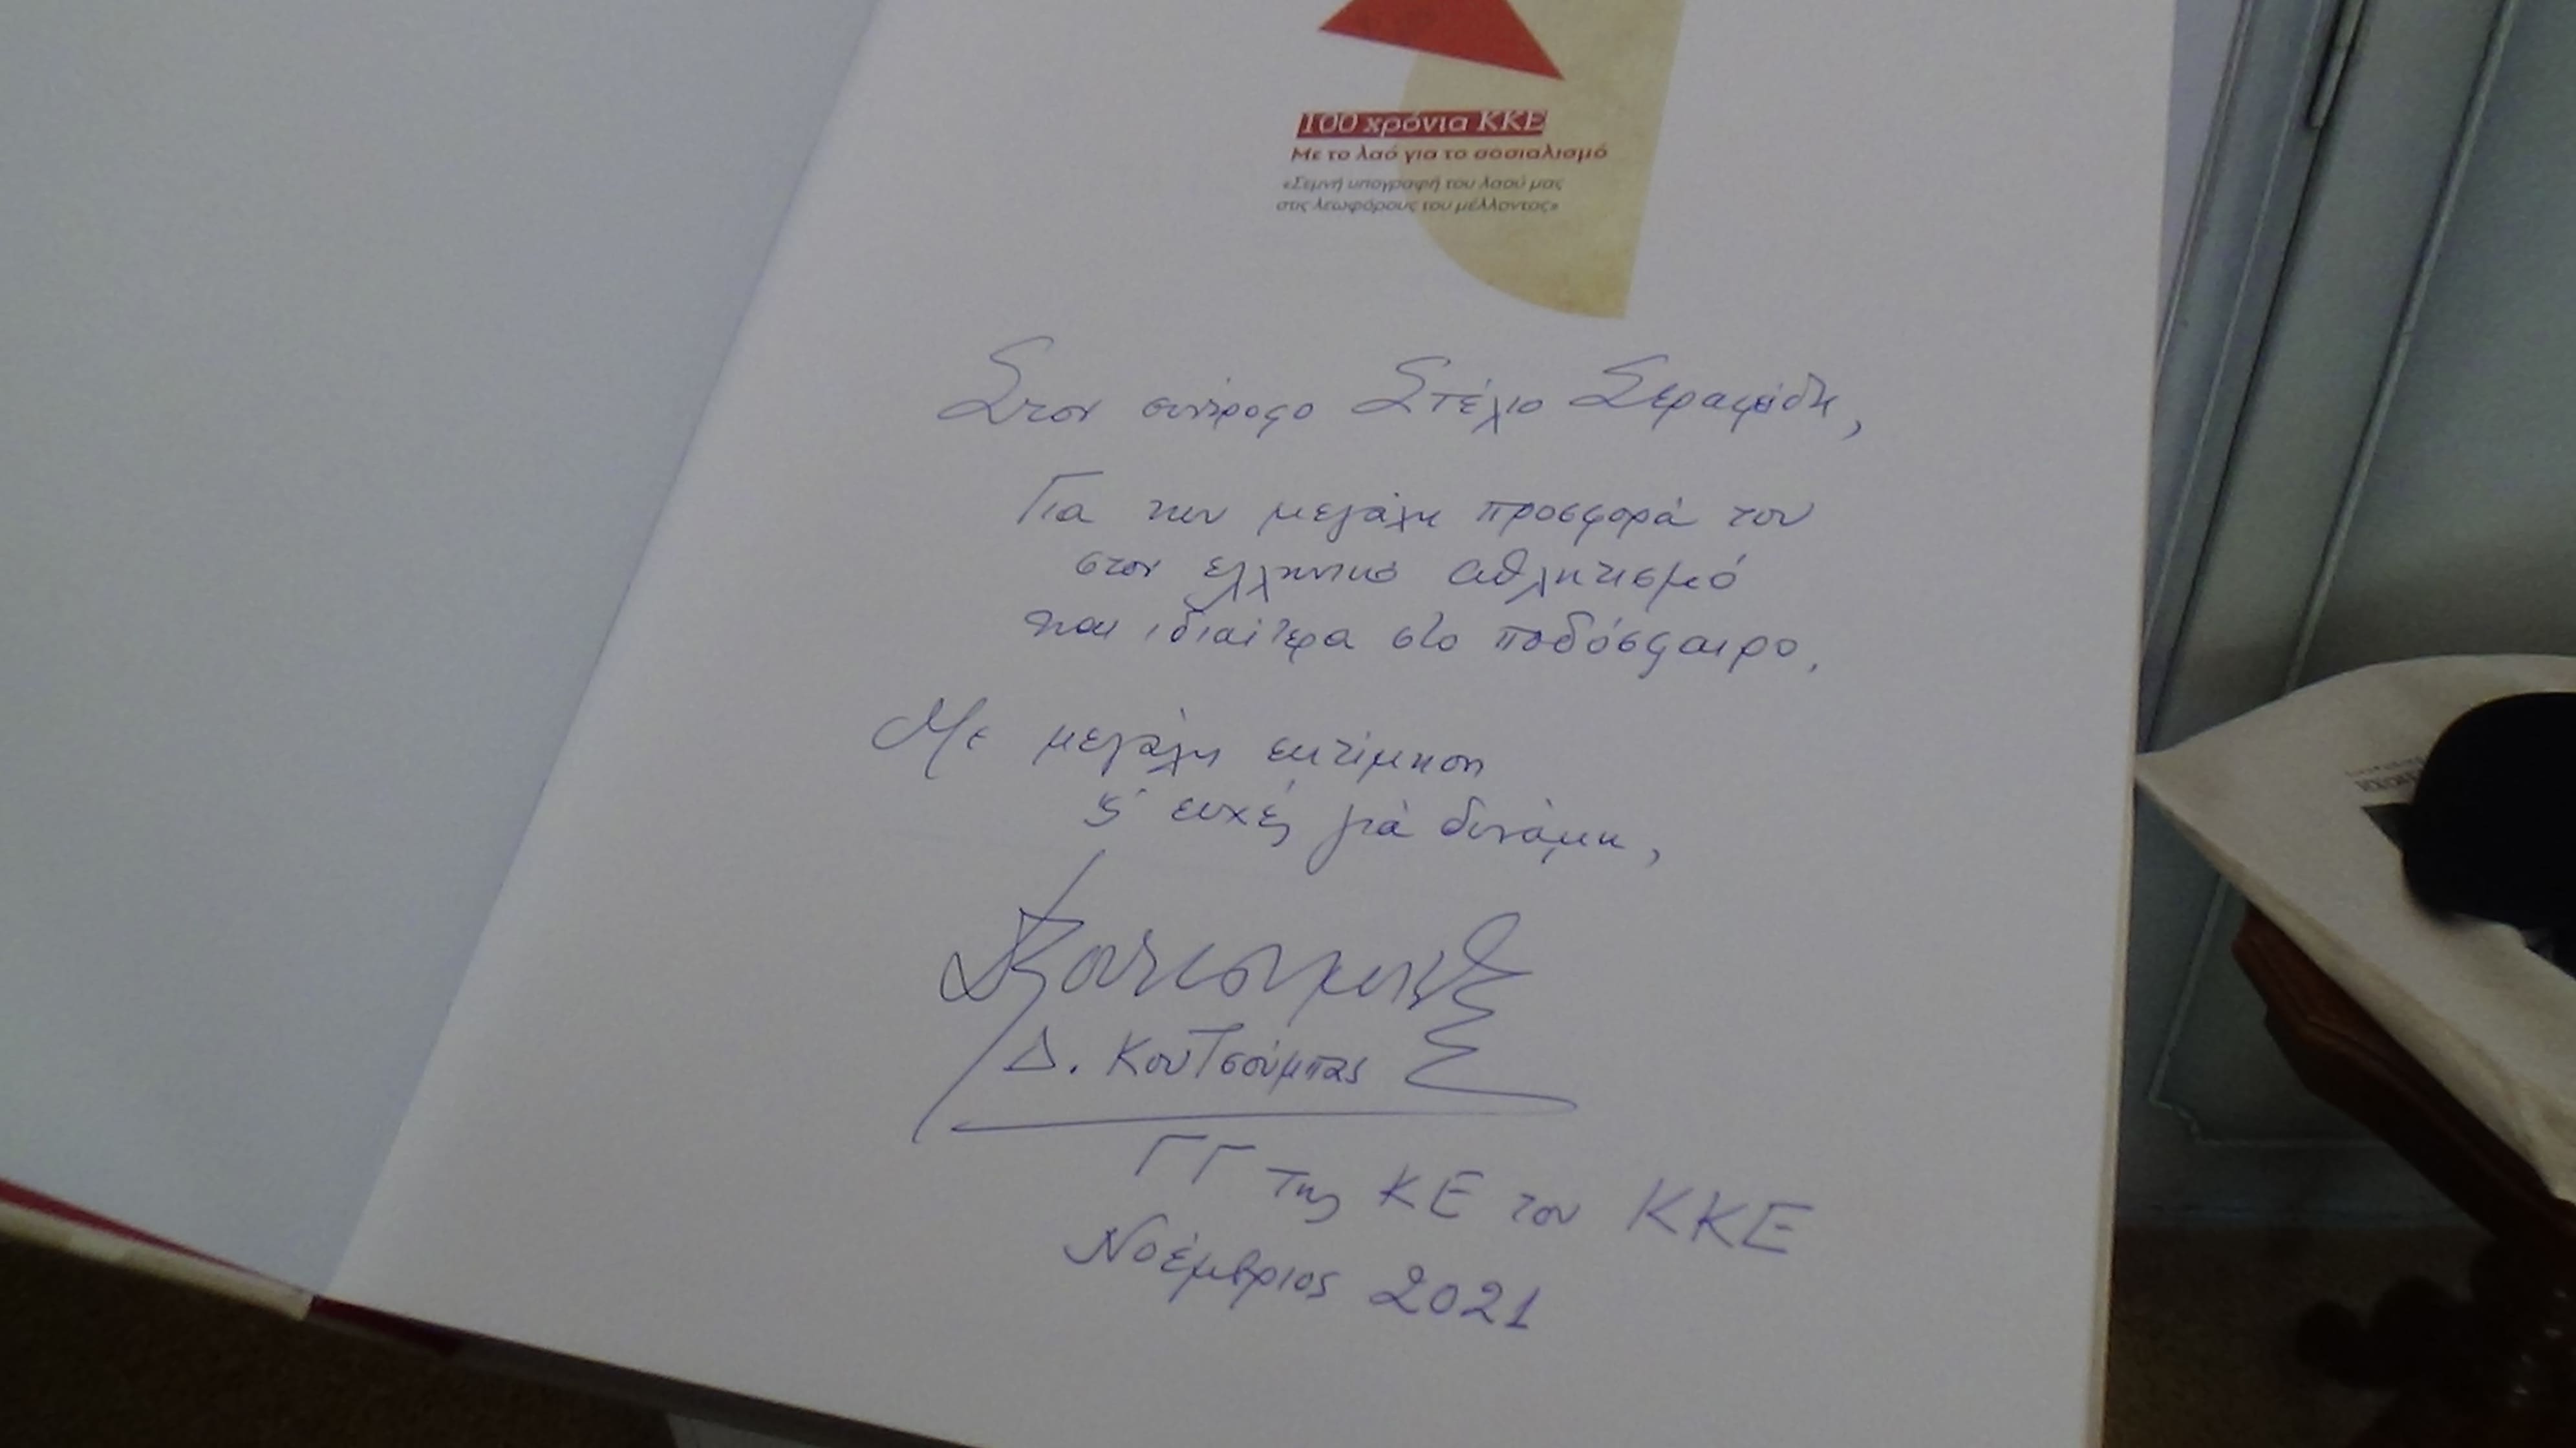 100 χρόνια ΚΚΕ
Με το λαό για το σοσιαλισμό
«Σεμνή υπογραφή του λαού μας
στις λεωφόρους του μέλλοντος»
Στον σύντροφο Στέλιο Σεραφείδη,
Για την μεγάλη προσφορά του
στον ελληνικό αθλητισμό
και ιδιαίτερα στο ποδόσφαιρο.
Με μεγάλη εκτίμηση
κ' ευχές για δύναμη,
Δ. Κουτσούμπας
ΓΓ της ΚΕ του ΚΚΕ
Νοέμβριος 2021